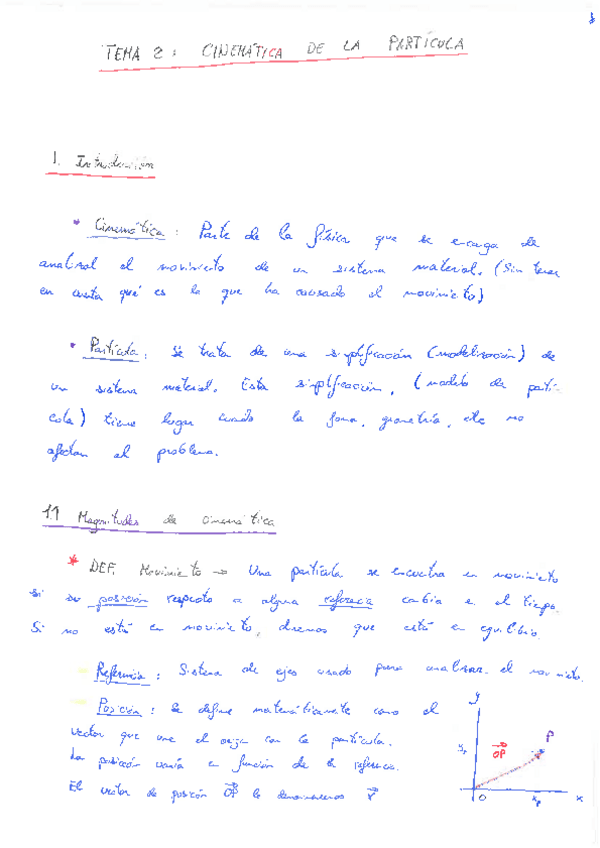 TEMA 2: CINEMÁTICA DE LA PARTÍCULA
1. Introducción
* Cinemática: Parte de la física que se encarga de
analizar el movimiento de un sistema material. (Sin tener
en cuenta qué es lo que ha causado el movimiento)
* Partícula: Se trata de una simplificación (modelización) de
un sistema material. Esta simplificación, (modelo de partí-
cula) tiene lugar cuando la forma, geometría, etc no
afectan al problema.
1.1 Magnitudes de cinemática
* DEF. Movimiento → Una partícula se encuentra en movimiento
si su posición respecto a alguna referencia cambia en el tiempo.
Si no está en movimiento, diremos que está en equilibrio.
- Referencia: Sistema de ejes usado para analizar el movimiento.
- Posición: Se define matemáticamente como el
vector que une el origen con la partícula.
La posición varía en función de la referencia.
El vector de posición OP lo denominamos r
y
yp
OP
P
O
xp
x